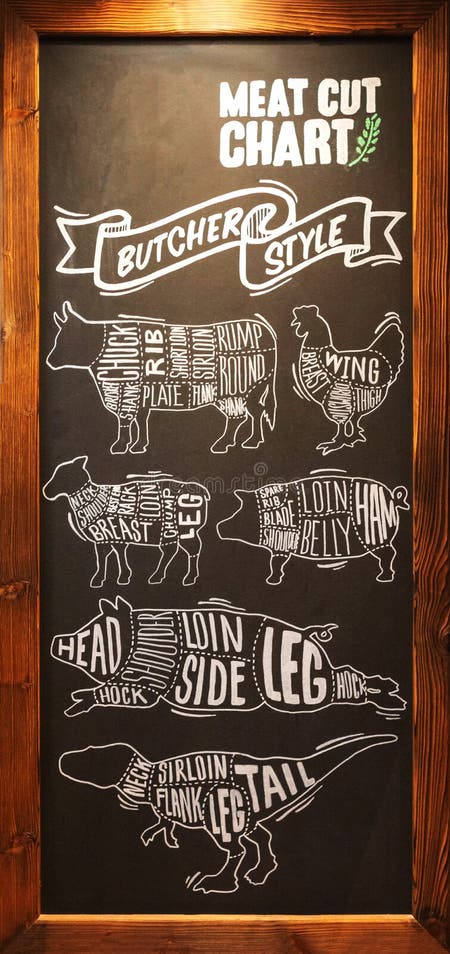 MEAT CUT
CHART
BUTCHER
STYLE
CHUCK
RIB
SHORTLOIN
SIRLOIN
RUMP
ROUND
SHANK
PLATE
FLANK
SHANK
BREAST
WING
THIGH
NECK
SHOULDER
RACK
LOIN
CHUMP
LEG
BREAST
SPARE
RIB
BLADE
SHOULDER
LOIN
BELLY
HAM
HEAD
SHOULDER
LOIN
SIDE
LEG
HOCK
HOCK
NECK
SIRLOIN
FLANK
LEG
TAIL
dreamstime